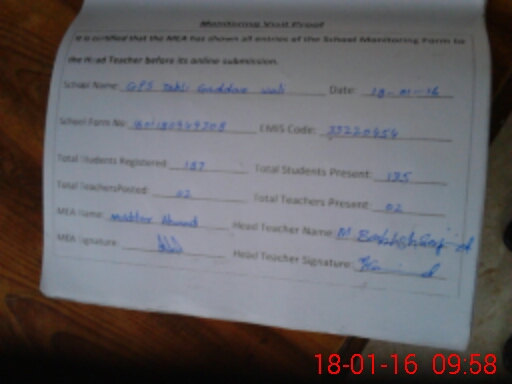 Monitoring Visit Proof
It is certified that the MEA has shown all entries of the School Monitoring Form to
the Head Teacher before its online submission.
School Name: GPS Gaddan Date: 18-01-16
School Form No: EMIS Code:
Total Students Registered: 137 Total Students Present: 135
Total TeachersPosted: 02 Total Teachers Present: 02
MEA Name: Ahmad Head Teacher Name: M
MEA Signature: Head Teacher Signature:
18-01-16 09:58